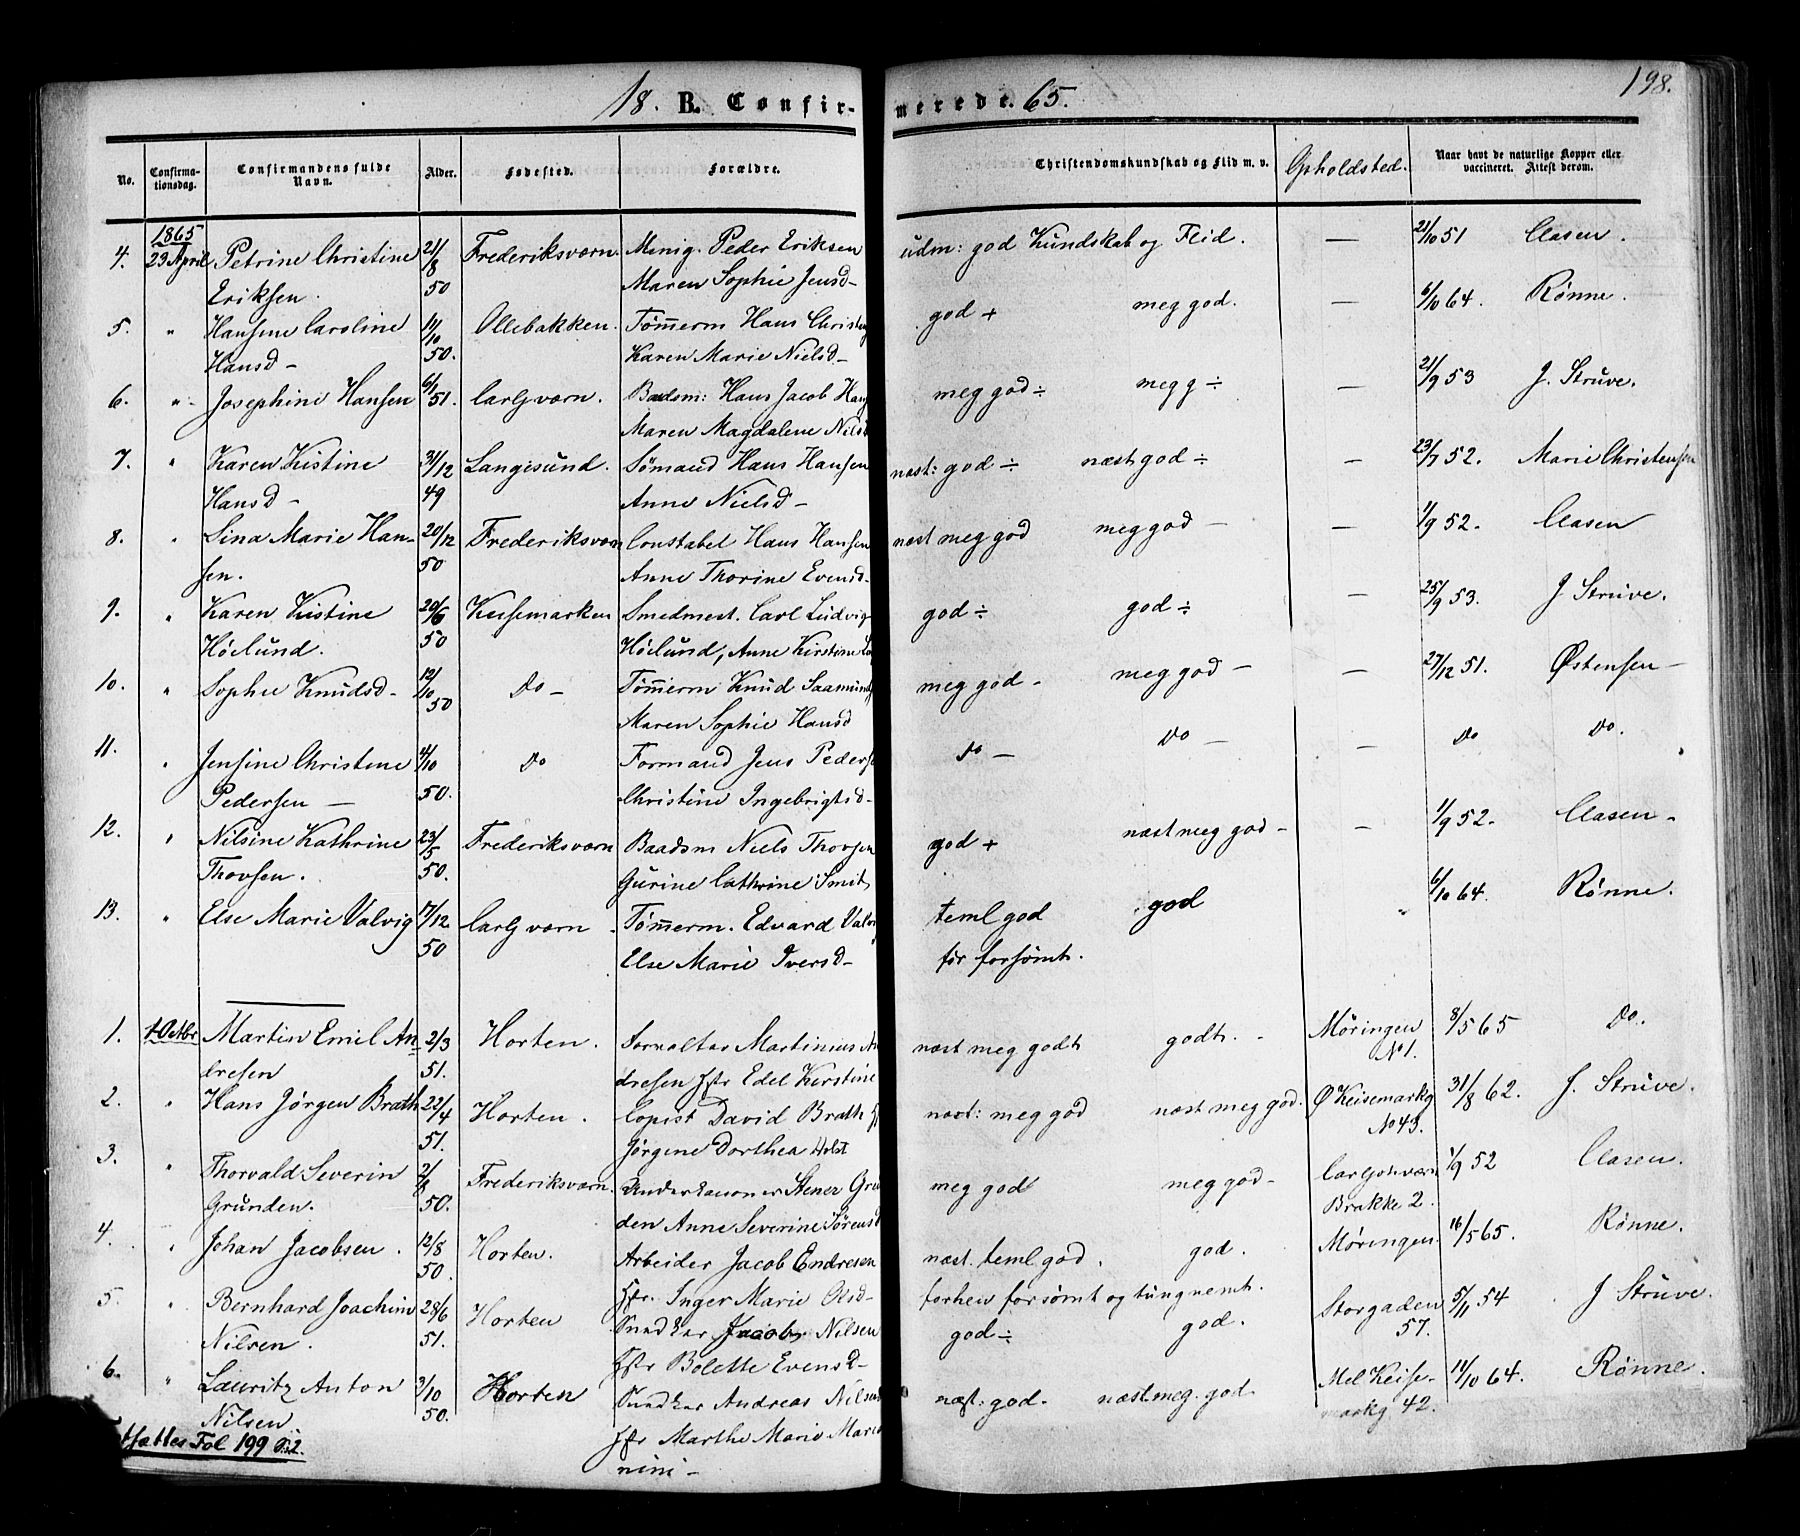 18. B. Confirmerede. 65.
198.
No. Confirmationsdag. Confirmandens fulde Navn. Alder. Fødested. Forældre. Christendomskundskab og Flid m. v. Opholdsted. Naar havt de naturlige Kopper eller vaccineret. Attest derom.
1865
4. 23 April Petrine Christine 21/8 Frederiksværn. Menig. Peder Eriksen udm: god Kundskab og Flid. — 21/10 51 Clasen.
Eriksen. 50 Maren Sophie Jensd-
5. " Hansine Caroline 11/10 Ollebakken. Tømmerm Hans god + meg god. — 6/10 64. Rønne.
Hansd- 50. Karen Marie Nielsd-
6. " Josephine Hansen 6/1 51. Carljværn. Baadsm: Hans Jacob meg god ÷ meg g ÷ — 21/9 53 J. Struve.
Maren Magdalene
7. " Karen Kistine 31/12 Langesund. Sømand Hans Hansen næst: god ÷ næst god ÷ — 23/7 52. Marie Christensen
Hansd- 49 Anne Nielsd-
8. " Lina Marie Han- 20/12 Frederiksværn Constabel Hans Hansen næst meg god meg god - — 1/9 52. Clasen
sen. 50 Anne Thorine Evensd-
9. " Karen Kistine 20/6 Keisemarken Smedmest. Carl Ludvig god ÷ god ÷ — 25/9 53. J Struve.
Höilund. 50 Höilund, Anne Kirstine
10. " Sophie Knudsd- 12/10 50 Do- Tømmerm Knud meg god - meg god - — 27/12 51. Østensen-
Maren Sophie Hansd
11. " Jensine Christene 4/10 Do Formand Jens Do - Do - — Do Do.
Pedersen — 50. Christine Ingebrigtsd-
12. " Nilsine Kathrine 23/5 Frederiksværn Baadsm Niels Thovsen god + næst meg god - — 1/9 52. Clasen -
Thovsen. 50. Gurine Cathrine Smit
13. " Else Marie Valvig 17/12 Carljværn Tømmerm. Edvard teml god god " 6/10 64. Rønne.
50 Else Marie Iversd- før forsømt.
1. 1 Octbr Martin Emil An- 2/3 Horten. Martinius næst meg godt godt. - Møringen 8/5 65 Do.
dresen 51. dresen Hstr Edel Kirstine No 1.
2. " Hans Jørgen Brath 22/4 Horten. Copist David Brath næst: meg god næst meg god. Ø Keisemarkg 31/8 62. J. Struve.
51. Jørgine Dorthea Holst No 43.
3. " Thorvald Severin 2/8 Frederiksværn. Underkanoner Stener meg god meg god - Carljohværn 1/9 52 Clasen.
Grunden. 50. den Anne Severine Sørensd Brakke 2.
4. " Johan Jacobsen. 12/8 Horten. Arbeider Jacob Endresen næst. teml god. god. Møringen. 16/5 65. Rønne.
50. Hstr. Inger Marie Olsd- forhen forsømt og tungnemt.
5. " Bernhard Joachim 28/6 Horten Snedker Jacob Nilsen god ÷ god. Storgaden 5/11 54 J Struve.
Nilsen. 51. Hstr Bolette Evensd- 57.
6. " Lauritz Anton 3/10 Horten Snedker Andreas næst: god. næst meg. god Mel Keise- 11/10 64. Rønne.
Nilsen 50. Hstr Marthe Marie markg 42.
nini -
Fol 199